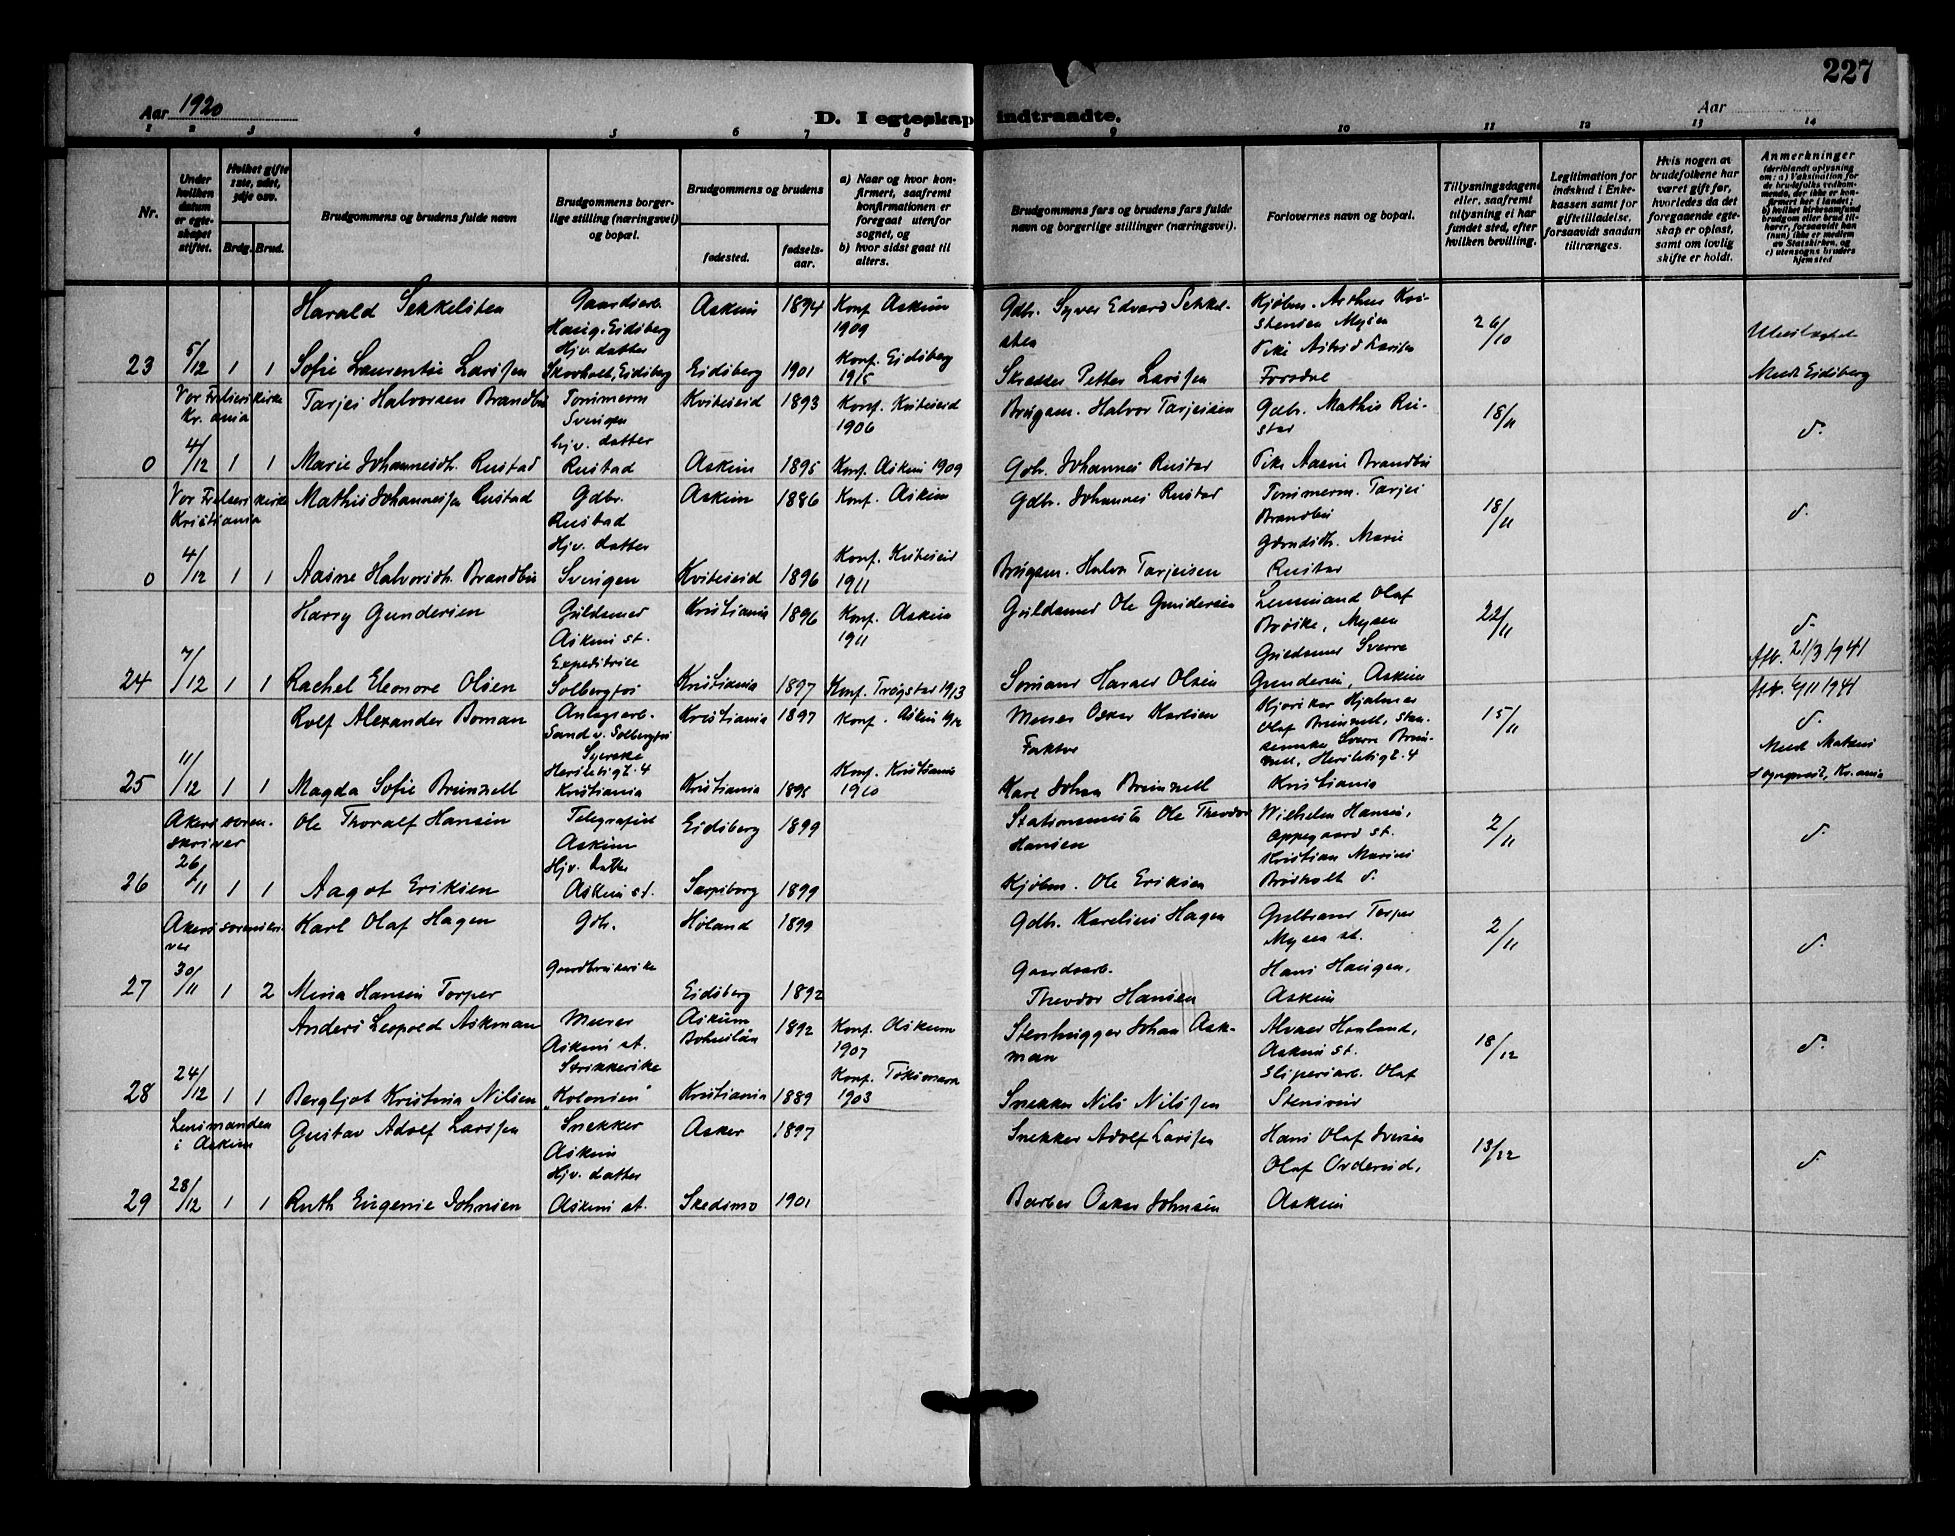 227
Aar 1920
D. I egteskap indtraadte.
Aar
1 2 3 4 5 6 7 8 9 10 11 12 13 14
Nr.
Under hvilken datum er egteskapet stiftet.
Hvilket gifte 1ste, 2det, 3dje osv.
Brdg. Brud.
Brudgommens og brudens fulde navn
Brudgommens borgerlige stilling (næringsvei) og bopæl.
Brudgommens og brudens
fødested.
fødselsaar.
a) Naar og hvor konfirmert, saafremt konfirmationen er foregaat utenfor sognet, og
b) hvor sidst gaat til alters.
Brudgommens fars og brudens fars fulde navn og borgerlige stillinger (næringsvei).
Forlovernes navn og bopæl.
Tillysningsdagene eller, saafremt tillysning ei har fundet sted, efter hvilken bevilling.
Legitimation for indskud i Enkekassen samt for giftetilladelse, forsaavidt saadan tiltrænges.
Hvis nogen av brudefolkene har været gift før, hvorledes da det foregaaende egteskap er opløst, samt om lovlig skifte er holdt.
Anmerkninger
(deriblandt oplysning om: a) Vaksination for de brudefolks vedkommende, der ikke er konfirmert her i landet; b) hvilket kirkesamfund brudgom eller brud tilhører, forsaavidt han (hun) ikke er medlem av Statskirken, og c) utensogns bruders hjemsted
Harald Sekkelsten
Gaardsarb.
Haug, Eidsberg
Askim 1894 Konf. Askim
1909
Gdbr. Syver Edvard Sekkelsten
Kjøbm. Arthur Kristensen Mysen
26/10
23 5/12 1 1 Sofie Laurentie Larssen
Hjv. datter
Skovholt, Eidsberg
Eidsberg 1901 Konf. Eidsberg
1915
Petter Larssen
Pike Astrid Larsen
Meek Eidsberg
Vor Frelsers kirke
Kr.ania
Tarjei Halvorsen Brandbu
Tømmerm
Sverigen
Kviteseid 1893 Konf. Kviteseid
1906
Brugsm. Halvor Tarjeisen
Gdb. Mathis Rustad
18/11
d.
0 4/12 1 1 Marie Johannesdh. Rustad
hjv. datter
Rustad
Askim 1895 Konf. Askim 1909
Gdb. Johannes Rustad
Pike Aasne Brandbu
Vor Frelsers kirke
Kristiania
Mathis Johannessen Rustad
Gdbr.
Rustad
Askim 1886 Konf. Askim
Gdbr. Johannes Rustad
Tømmerm. Tarjei
Brandbu
18/11
d.
0 4/12 1 1 Aasne Halvorsdh. Brandbu
Hjv. datter
Sverigen
Kviteseid 1896 Konf. Kviteseid
1911
Brugsm. Halvor Tarjeisen
Marie
Rustad
Harry Gundersen
Guldsmed
Askim st.
Kristiania 1896 Konf. Askim
1911
Guldsmed Ole Gundersen
Lensmand Olaf
Mysen
Guldsmed Sverre
Gundersen, Askim
22/11
d.
Atb. 21/3 1941
24 7/12 1 1 Rachel Eleonore Olsen
Expeditrice
Solbergfos
Kristiania 1897 Konf. Trøgstad 1913
Sømand Harald Olsen
Atb. 6/11 1941
Rolf Alexander Boman
Anlegsarb.
Sand v. Solbergfos
Kristiania 1897 Konf. Askim 1912
Murer Oskar Karlsen
Faktor
Hjalmar
Olaf Brunzell
Sverre Brunzell, Herslebsgt. 4
Kristiania
15/11
d.
25 11/12 1 1 Magda Sofie Brunzell
Syerske
Herslebsgt. 4
Kristiania
Kristiania 1895 Konf. Kristiania
1910
Karl Johan Brunzell
Sogneprest, Kr.ania
Akers sorenskriver
Ole Thoralf Hansen
Telegrafist
Askim
Eidsberg 1899
Stationsmester Ole Theodor
Hansen
Wilhelm Hansen,
Oppegaard st.
2/11
d.
26 26/11 1 1 Aagot Eriksen
Hjv. datter
Askim st.
Sarpsborg 1899
Kjøbm. Ole Eriksen
Kristian Marius
Brødholt d.
Akers sorenskriver
Karl Olaf Hagen
Gdb.
Høland 1899
Gdbr. Karelius Hagen
Gulbrand Torper
Mysen st.
2/11
d.
27 30/11 1 2 Mina Hansen Torper
Gaardbrukerske
Eidsberg 1892
Gaardsarb.
Theodor Hansen
Hans Haugen,
Askim
Anders Leopold Askman
Murer
Askim st.
Askum
Bohuslän
1892 Konf. Askum
1907
Stenhugger Johan Askman
Haaland,
Askim st.
18/12
d.
28 24/12 1 1 Bergljot Kristina Nilsen
Strikkerske
„Kolonien"
Kristiania 1889 Konf. Jaksmark
1903
Snekker Nils Nilssen
Sliperiarb. Olaf
Stensrud
Lensmanden
i Askim
Gustav Adolf Larssen
Snekker
Askim
Asker 1897
Snekker Adolf Larssen
Hans Olaf Iversen
Olaf Ordrerud,
Askim
13/12
d.
29 28/12 1 1 Ruth Eugenie Johnsen
Hjv. datter
Askim st.
Skedsmo 1901
Barber Oskar Johnsen